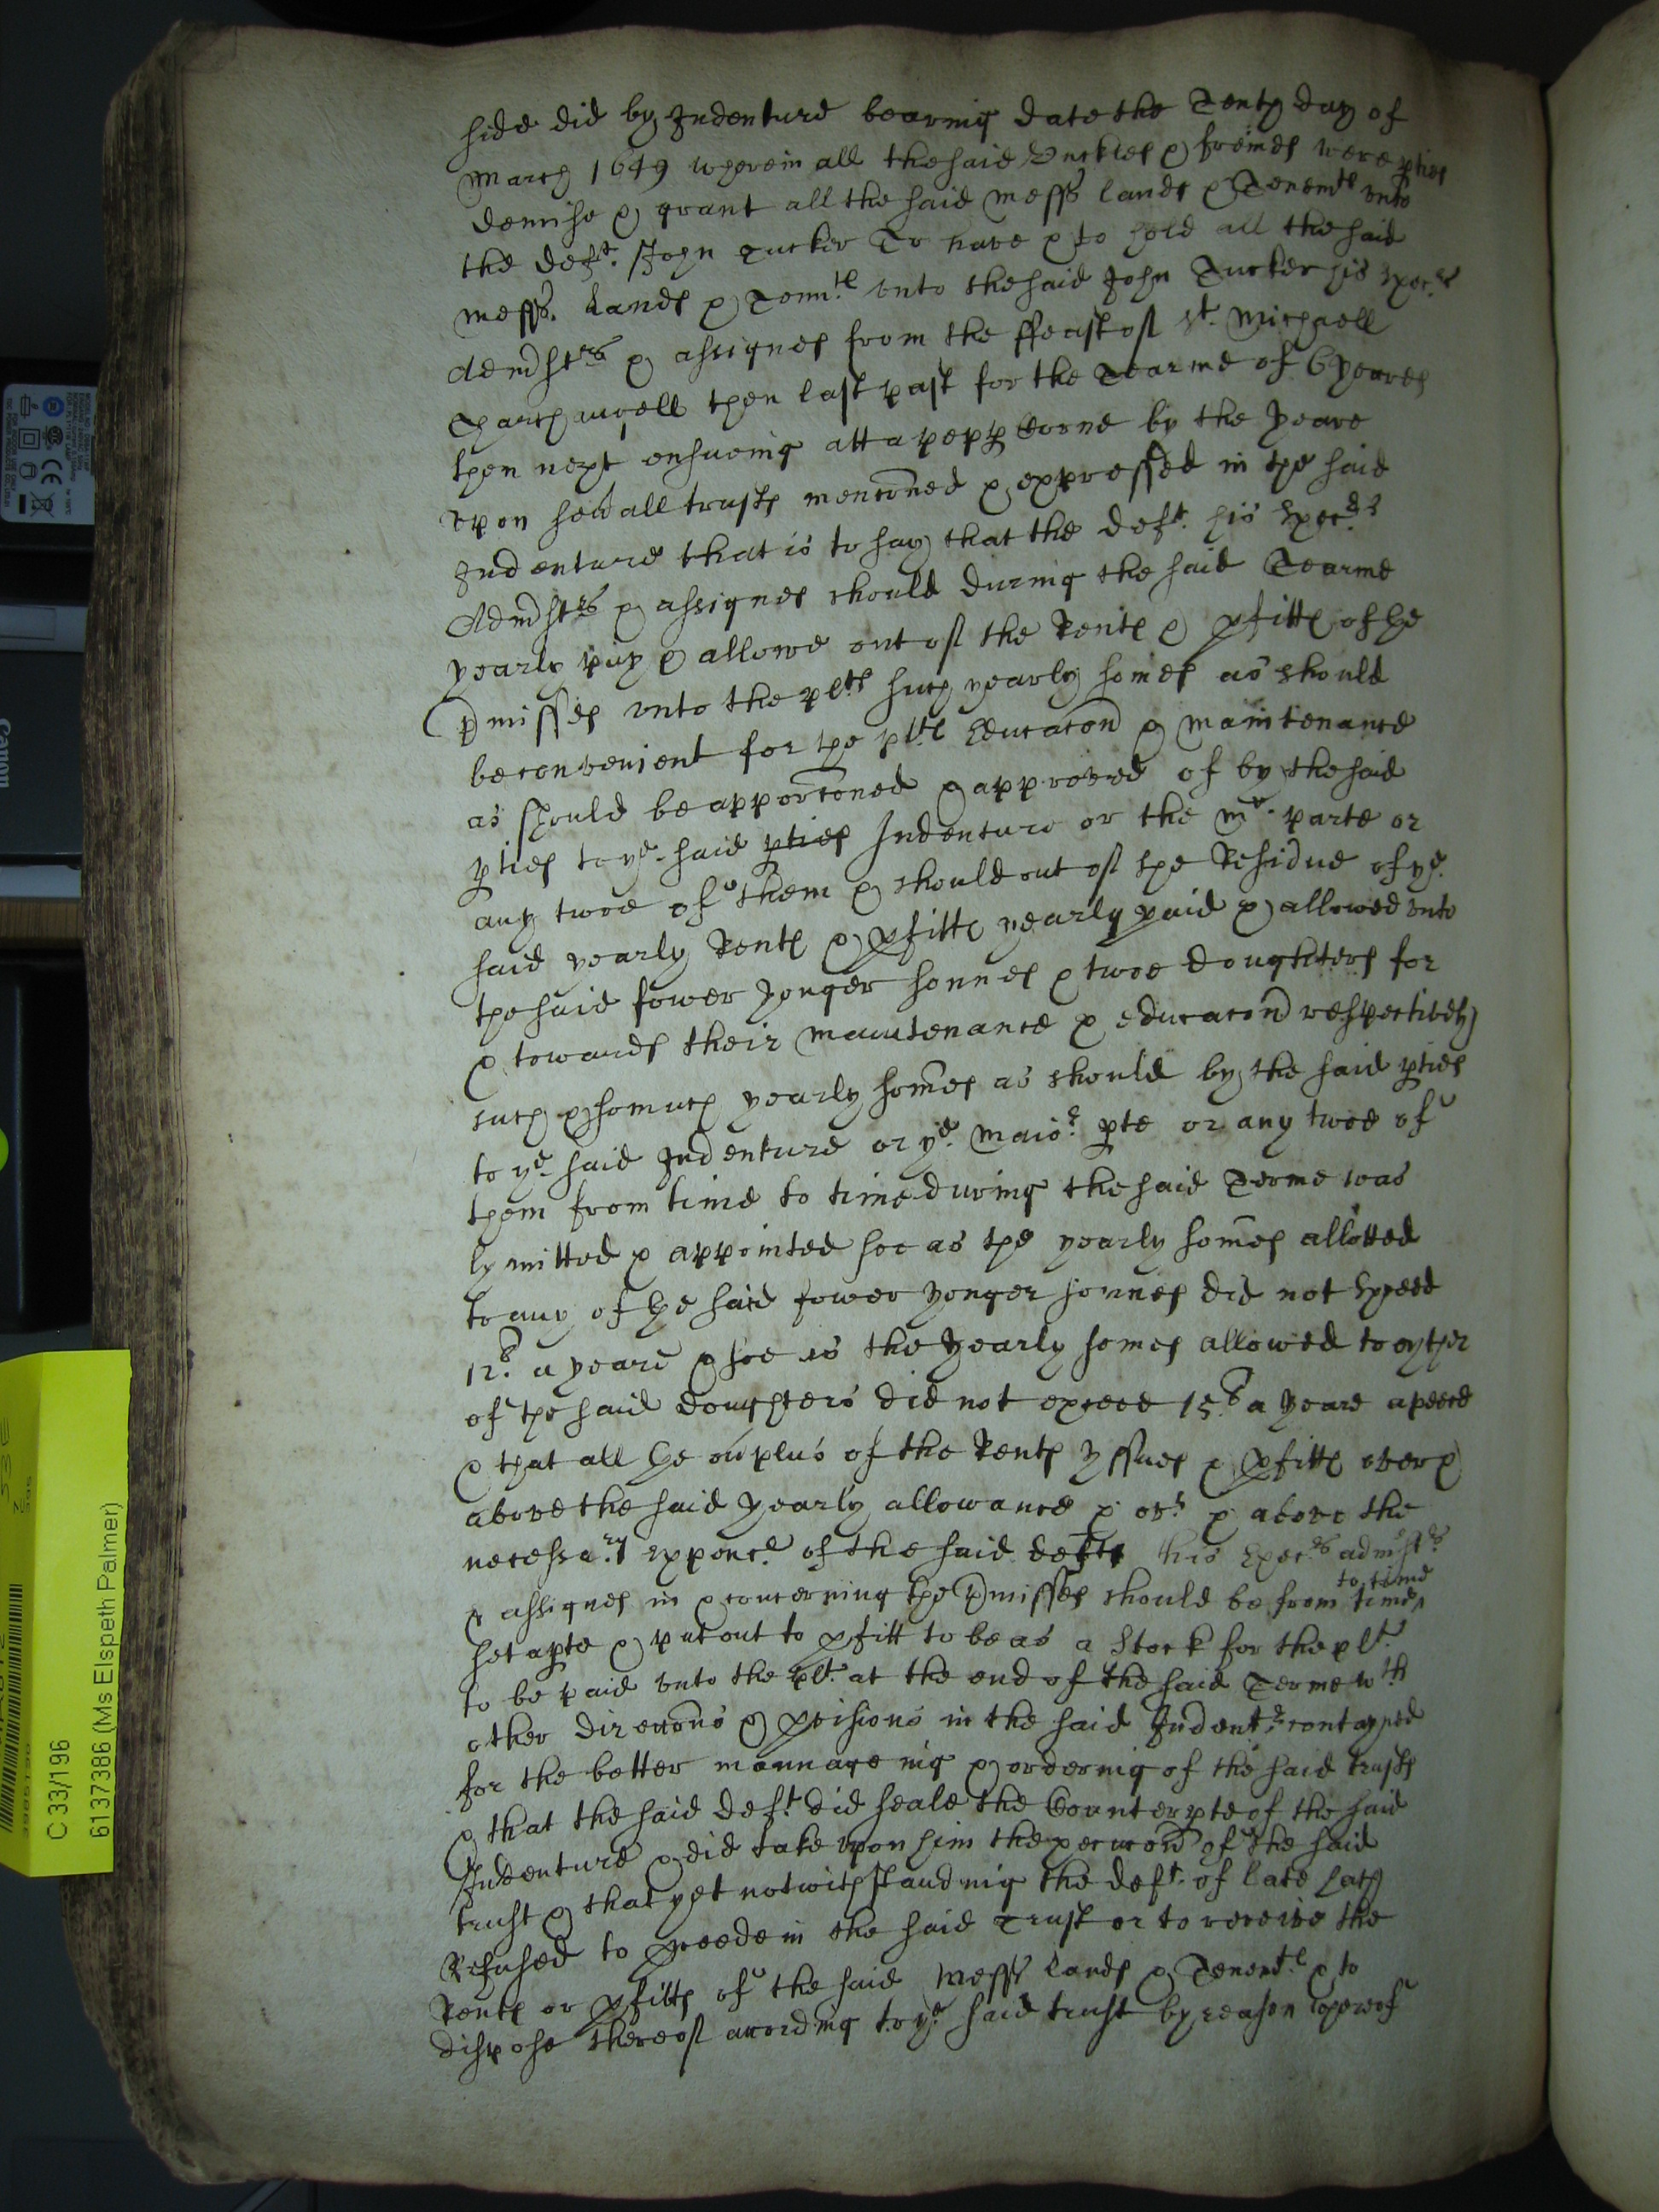 side did by Indenture bearing date the Tenth day of
March 1649 wherein all the said Unckles & freindes were pties
demise & grant all the said messs landes & Tenemtes unto
the deft. John Tucker To have & to hold all the said
messs. Landes & Tenmtes unto the said John Tucker his Execrs
Admstrs & assignes from the ffeast of St. Michaell
Tharchangell then last past for the Tearme of 6 yeares
then next ensueing att a pepp Corne by the yeare
upon sevall trusts menconed & expressed in the said
Indenture that is to say that the deft. his Execrs
Admstrs & assignes should during the said Tearme
yearly pay & allowe out of the Rents & pfitts of the
pmisses unto the plts such yearly somes as should
be convenient for the plts Educacon & maintenance
as should be apporconed & approved of by the said
pties to ye. said pties Indenture or the mr. parte or
any twoe of them & should out of the Residue of ye.
said yearly Rents & pfitts yearly paid & allowed unto
the said fower yonger sonnes & twoe doughters for
& towardes their maintenance & educacon respectively
such & somuch yearly somes as should by the said pties
to ye. said Indenture or ye. maior. pte or any twoe of
them from time to time during the said Terme was
lymitted & appointed soe as the yearly somes allotted
to any of the said fower yonger sonnes did not Exceed
12l. a yeare & soe as the yearly somes allowed to eyther
of the said doughters did not exceed 15l a yeare apeece
& that all the ouplus of the Rents yssues & pfitts over &
above the said yearly allowance & ovr & above the
necessary expences of the said defts his Execrs admstrs
& assignes in & concerning the pmisses should be from time
to time
set apte & put out to pfitt to be as a stock for the plt.
to be paid unto the plt. at the end of the said Terme wth
other direcons & pvisions in the said Indentr. contayned
for the better mannageing & ordering of the said trusts
& that the said deft did seale the Counterpte of the said
Indenture & did take upon him the execucon of the said
trust & that yet notwithstanding the deft. of late hath
Refused to pceede in the said Trust or to receive the
Rents or pfitts of the said Messs landes & Tenemtes & to
dispose thereof according to ye. said trust by reason whereof
C 33/196
6137386 (Ms Elspeth Palmer)
Canon